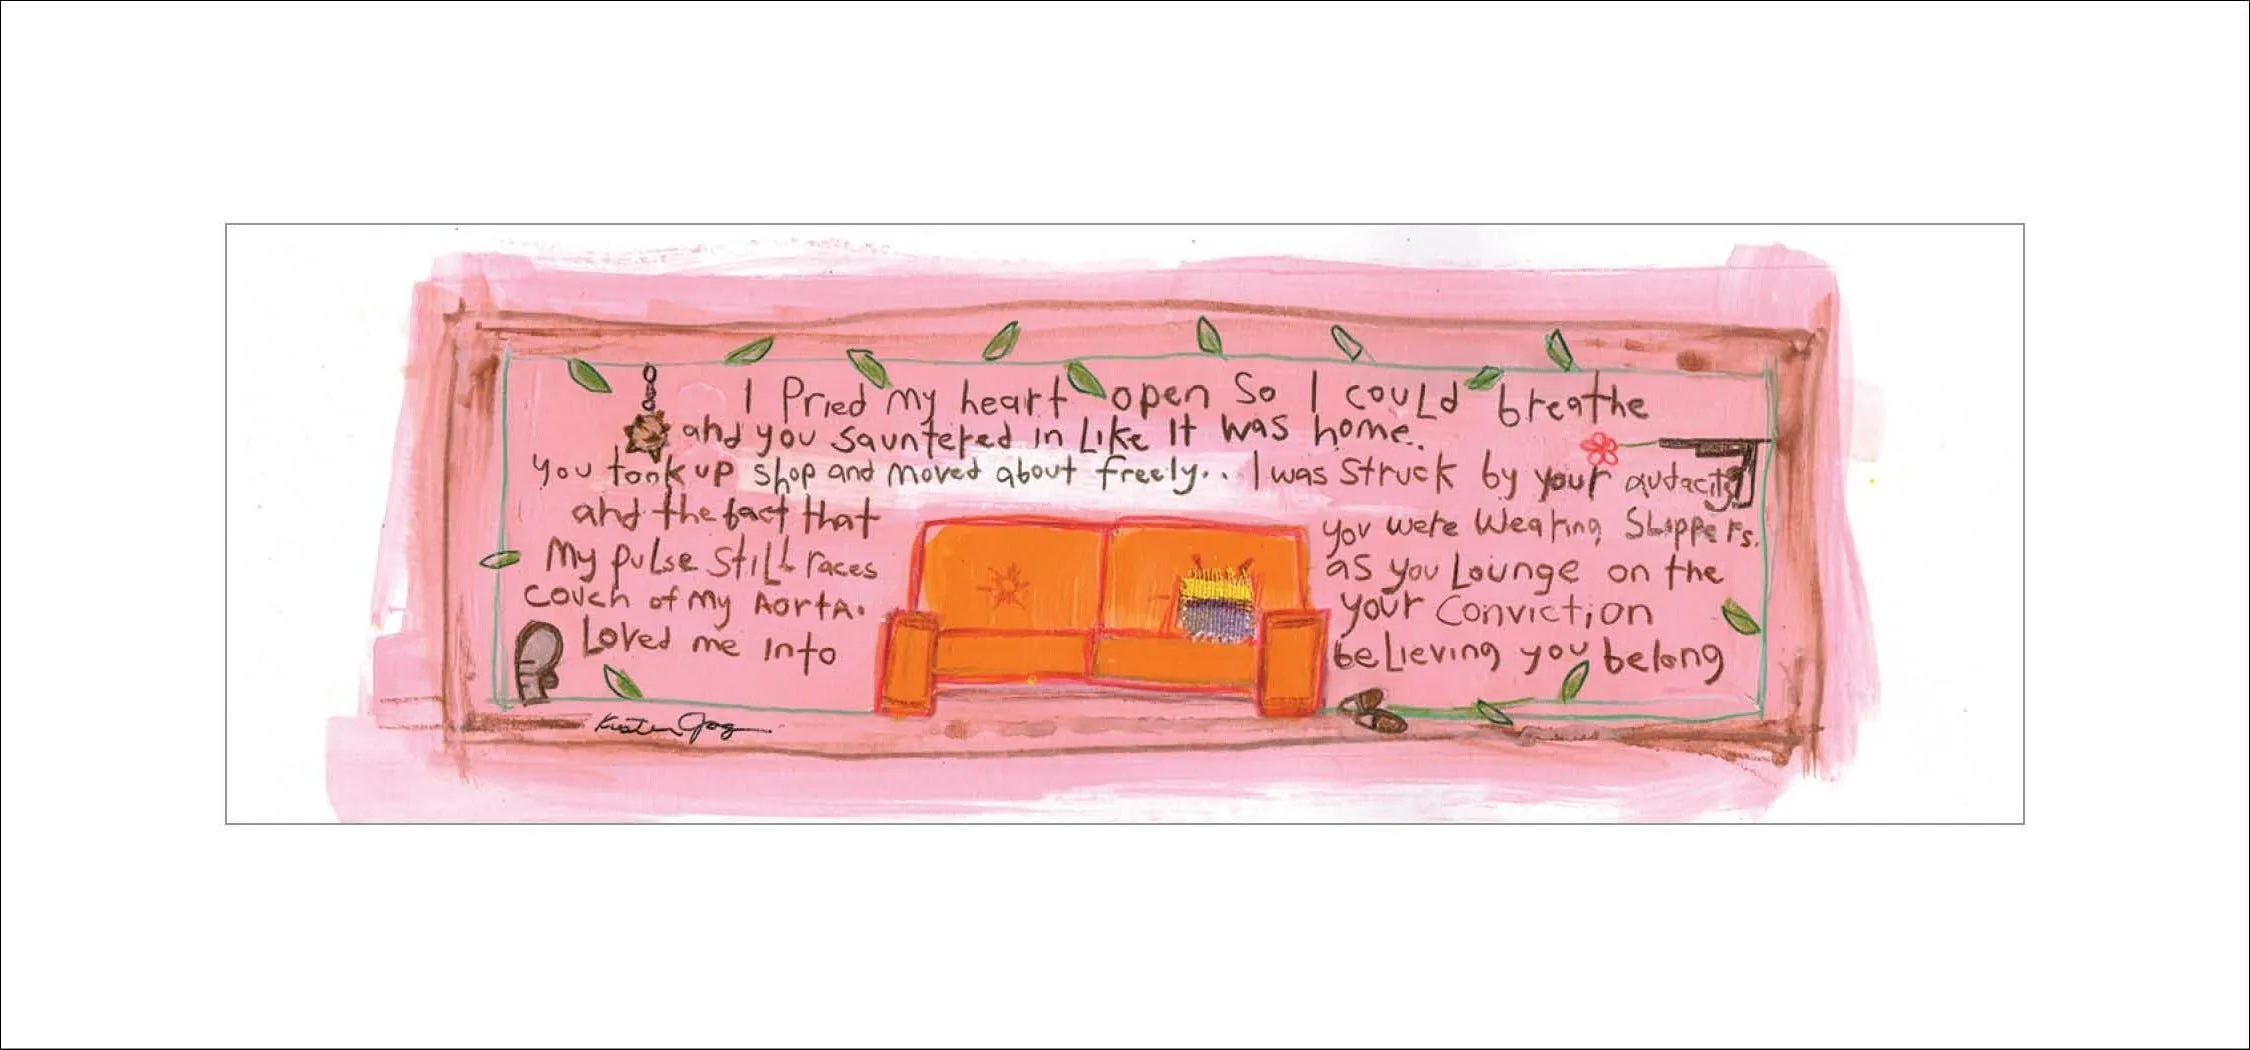 I Pried my heart open So I could breathe
and you sauntered in Like It was home.
you took up shop and moved about freely.. I was Struck by your audacity
and the fact that you were Wearing Slippers.
My pulse still races as you Lounge on the
couch of my Aorta. your Conviction
Loved me Into believing you belong